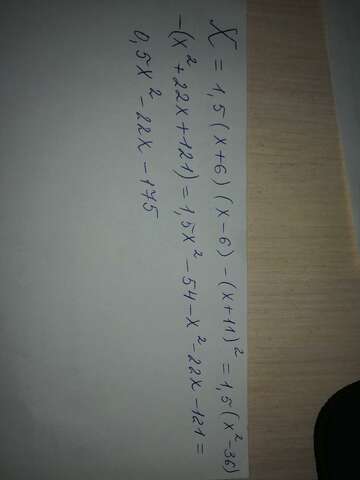 X = 1,5(x+6)(x-6)-(x+11)² = 1,5(x²-36)
-(x²+22x+121) = 1,5x²-54-x²-22x-121=
0,5x²-22x-175